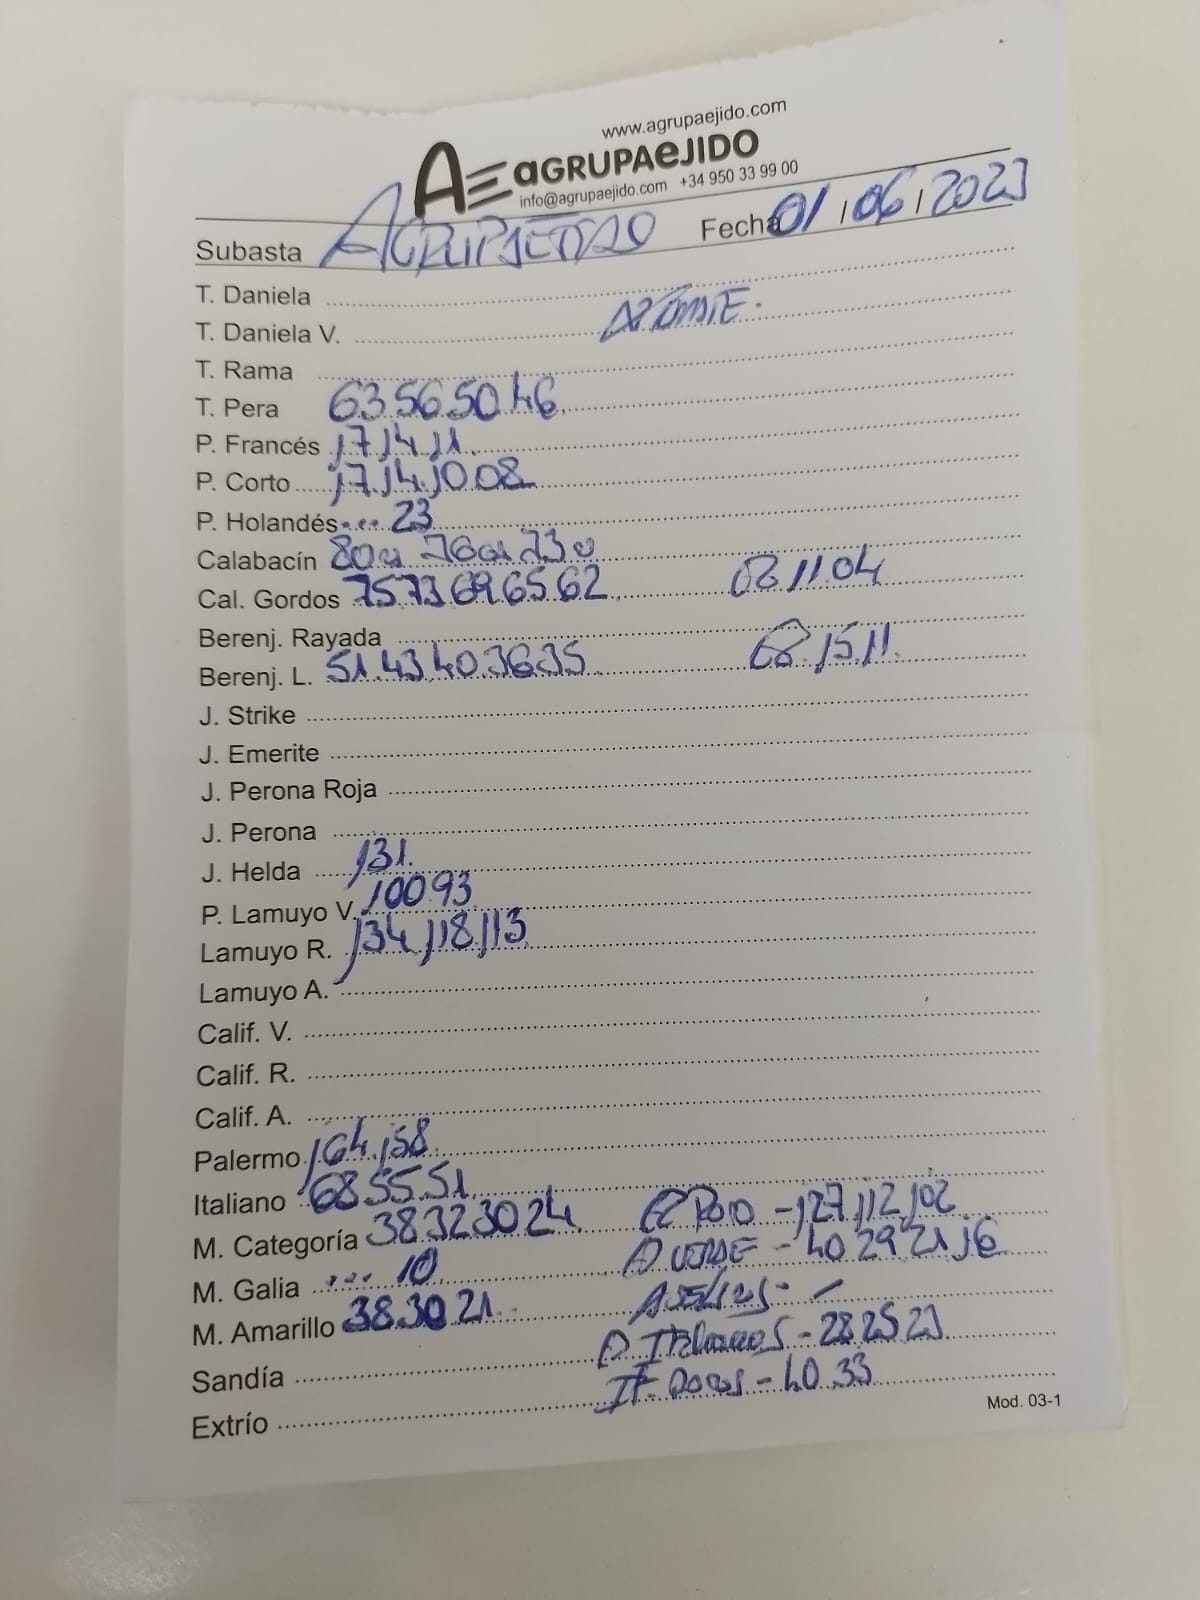 www.agrupaejido.com
AE aGRUPAeJIDO
info@agrupaejido.com +34 950 33 99 00
Subasta AGRUPAEJIDO Fecha 01/06/2023
T. Daniela
T. Daniela V.
T. Rama
T. Pera 63 56 50 46
P. Francés 17 14 11
P. Corto 17 14 10 08
P. Holandés 23
Calabacín 80 76 73
Cal. Gordos 75 73 69 65 62 02 11 04
Berenj. Rayada
Berenj. L. 51 43 40 36 35 68 15 11
J. Strike
J. Emerite
J. Perona Roja
J. Perona
J. Helda 131
P. Lamuyo V. 100 93
Lamuyo R. 134 118 113
Lamuyo A.
Calif. V.
Calif. R.
Calif. A.
Palermo 164 158
Italiano 68 55 51
M. Categoría 38 32 30 24 - 127 112 102
M. Galia 10 - 40 29 21 16
M. Amarillo 38 30 21
Sandía - 28 25 23
Extrío - 40 33
Mod. 03-1